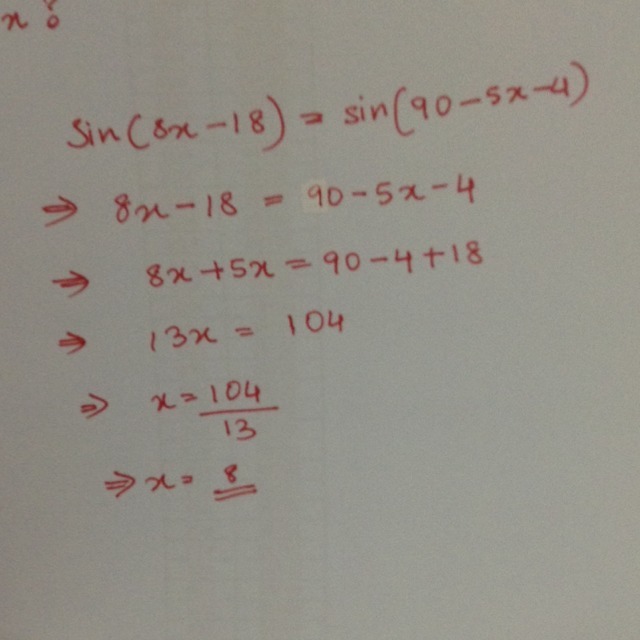 x :
sin(8x-18) = sin(90-5x-4)
⇒ 8x-18 = 90-5x-4
⇒ 8x+5x = 90-4+18
⇒ 13x = 104
⇒ x = 104/13
⇒ x = 8